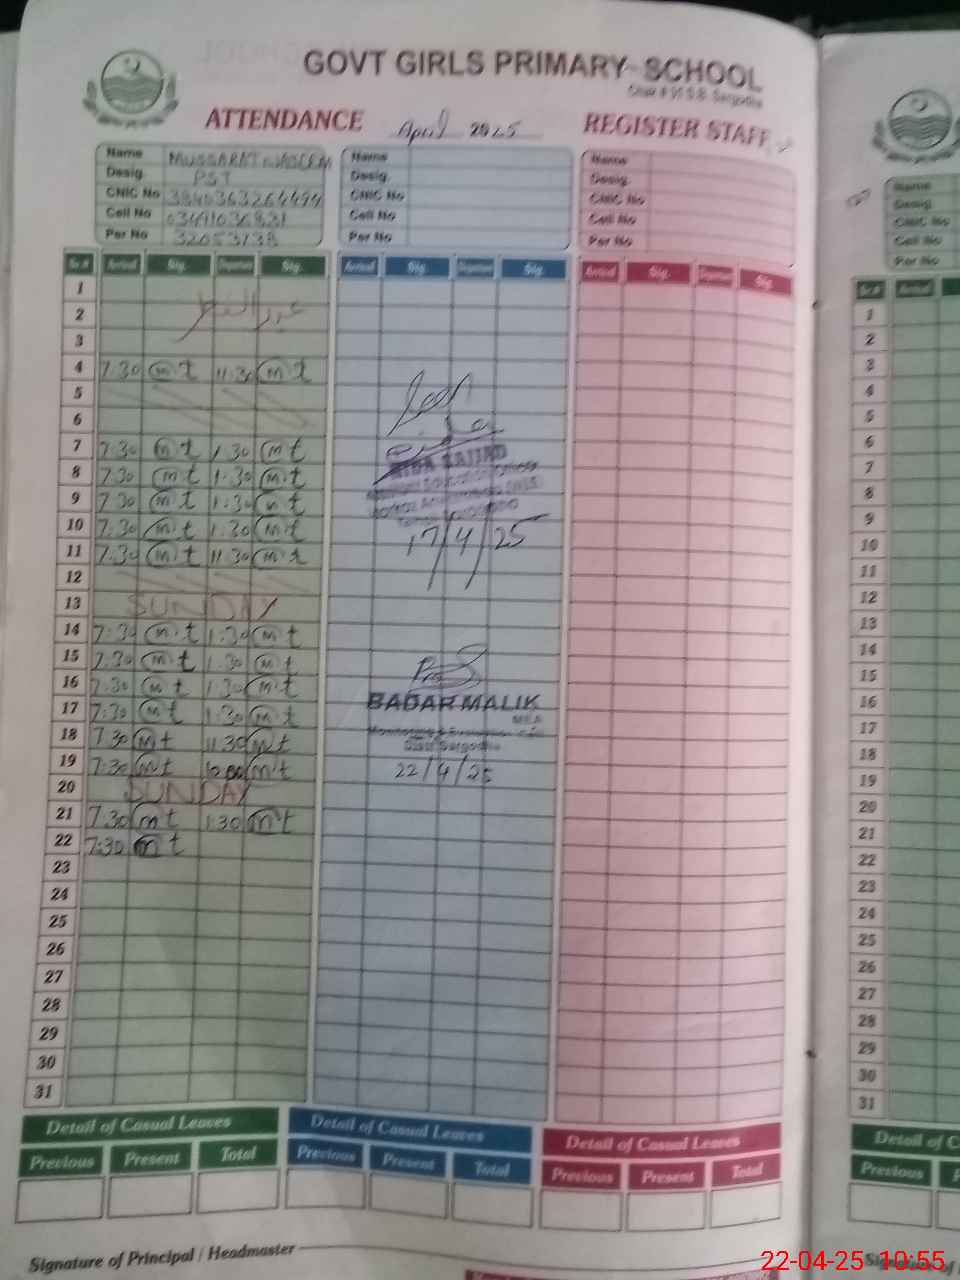 GOVT GIRLS PRIMARY SCHOOL
Sargodha
ATTENDANCE April 2025 REGISTER STAFF
Name MUSSARAT Name Name Name
Desig. PST Desig. Desig. Desig.
CNIC No 3840363264494 CNIC No CNIC No CNIC No
Cell No 03491036831 Cell No Cell No Cell No
Per No Per No Per No Per No
Sr.# Arrival Sig. Departure Sig. Arrival Sig. Departure Sig. Arrival Sig. Departure Sig. Sr.# Arrival
1 1
2 عید الفطر 2
3 3
4 7:30 m t 11:30 m t 4
5 5
6 6
7 7:30 m t 1:30 m t 7
8 7:30 m t 1:30 m t 8
9 7:30 m t 1:30 m t 9
10 7:30 m t 1:30 m t 10
11 7:30 m t 11:30 m t 17/4/25 11
12 12
13 SUNDAY 13
14 7:30 m t 1:30 m t 14
15 7:30 m t 1:30 m t 15
16 7:30 m t 1:30 m t 16
17 7:30 m t 1:30 m t BADAR MALIK 17
MEA
18 7:30 m t 11:30 m t 18
Distt Sargodha
19 7:30 m t m t 22/4/25 19
20 SUNDAY 20
21 7:30 m t 1:30 m t 21
22 7:30 m t 22
23 23
24 24
25 25
26 26
27 27
28 28
29 29
30 30
31 31
Detail of Casual Leaves Detail of Casual Leaves Detail of Casual Leaves Detail of C
Previous Present Total Previous Present Total Previous Present Total Previous
Signature of Principal / Headmaster
22-04-25 10:55